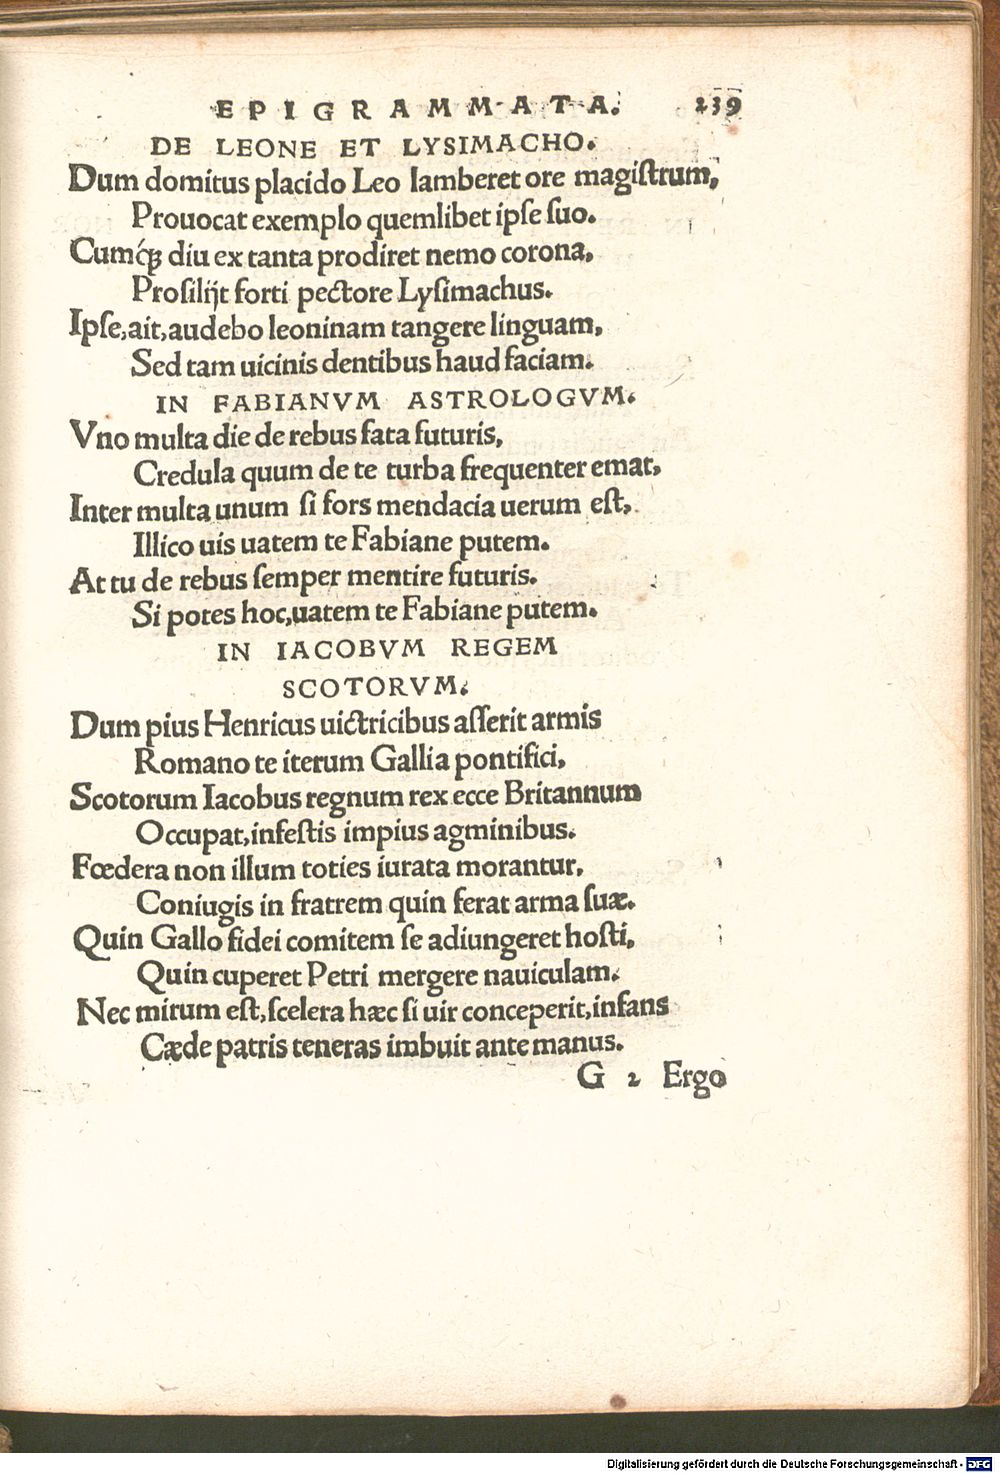 EPIGRAMMATA. 239
DE LEONE ET LYSIMACHO.
Dum domitus placido Leo lamberet ore magiſtrum,
Prouocat exemplo quemlibet ipſe ſuo.
Cumq́ꝫ diu ex tanta prodiret nemo corona,
Proſilijt forti pectore Lyſimachus.
Ipſe, ait, audebo leoninam tangere linguam,
Sed tam uicinis dentibus haud faciam.
IN FABIANVM ASTROLOGVM.
Vno multa die de rebus fata futuris,
Credula quum de te turba frequenter emat,
Inter multa unum ſi fors mendacia uerum eſt,
Illico uis uatem te Fabiane putem.
At tu de rebus ſemper mentire futuris.
Si potes hoc, uatem te Fabiane putem.
IN IACOBVM REGEM
SCOTORVM.
Dum pius Henricus uictricibus aſſerit armis
Romano te iterum Gallia pontifici,
Scotorum Iacobus regnum rex ecce Britannum
Occupat, infeſtis impius agminibus.
Fœdera non illum toties iurata morantur,
Coniugis in fratrem quin ferat arma ſuæ.
Quin Gallo fidei comitem ſe adiungeret hoſti,
Quin cuperet Petri mergere nauiculam.
Nec mirum eſt, ſcelera hæc ſi uir conceperit, infans
Cæde patris teneras imbuit ante manus.
G 2 Ergo
Digitalisierung gefördert durch die Deutsche Forschungsgemeinschaft - DFG